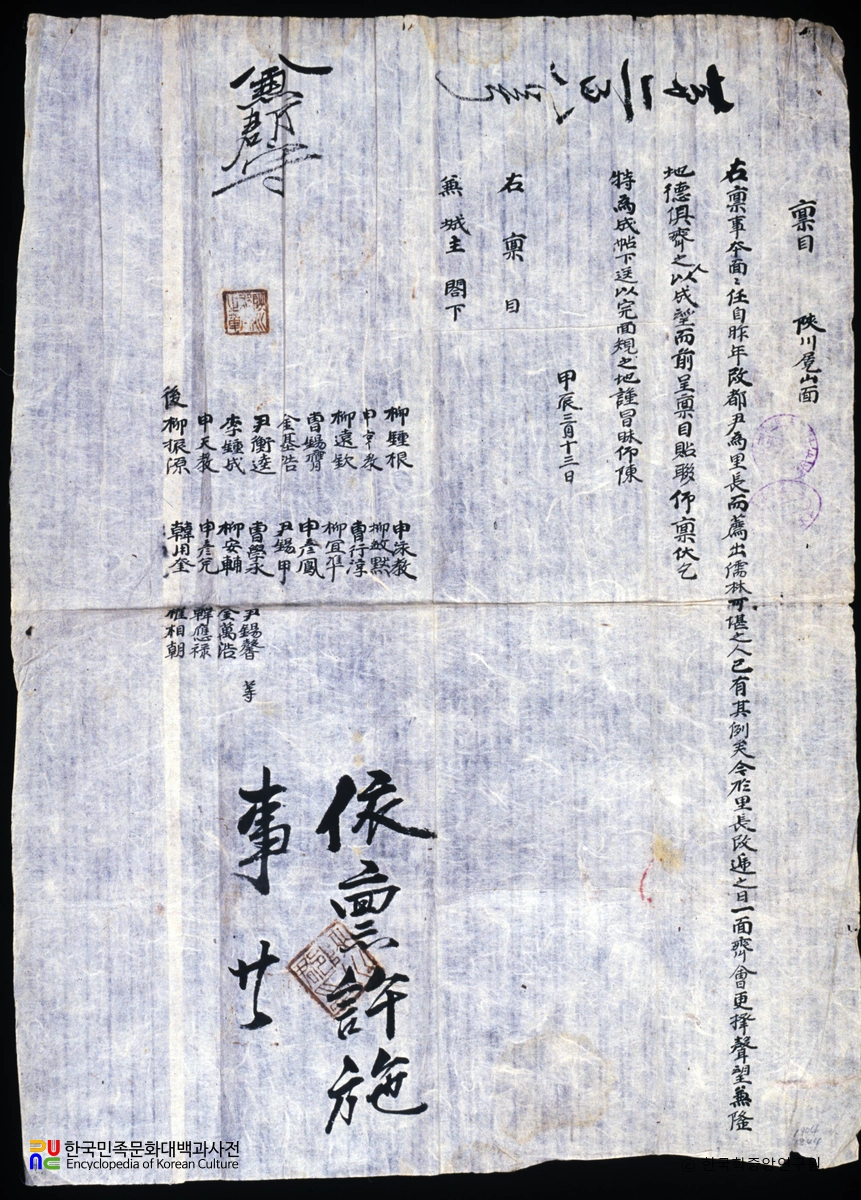 稟目 陜川尾山面
右稟事本面〻任自昨年改都尹為里長而薦出儒林可堪之人已有其例矣今於里長改遞之日一面齊會更擇聲望兼隆
地德俱齊之人以成望而前呈稟目貼聯仰稟伏乞
特為成帖下送以完面規之地謹冒昧仰陳
甲辰三月十三日
右稟目
兼城主 閤下
柳鍾根 申泳教
申宗教 柳敏默
柳遠欽 曺行淳
曺錫齊 柳宜準
金基浩 申彦鳳
尹衡逵 尹錫甲
李鍾成 曺學承 尹錫馨 等
申天教 柳安輔 金萬浩
後 柳振源 申彦克 韓應祿
韓用奎 崔相朝
兼郡守
依稟許施
事 廿
한국민족문화대백과사전
Encyclopedia of Korean Culture
1904
1844